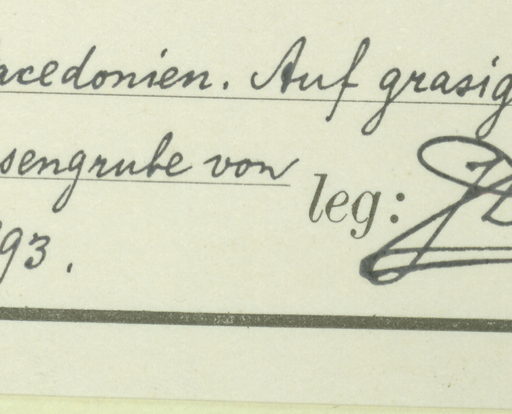 acedonien. Auf grasig
sengrube von
leg:
93.